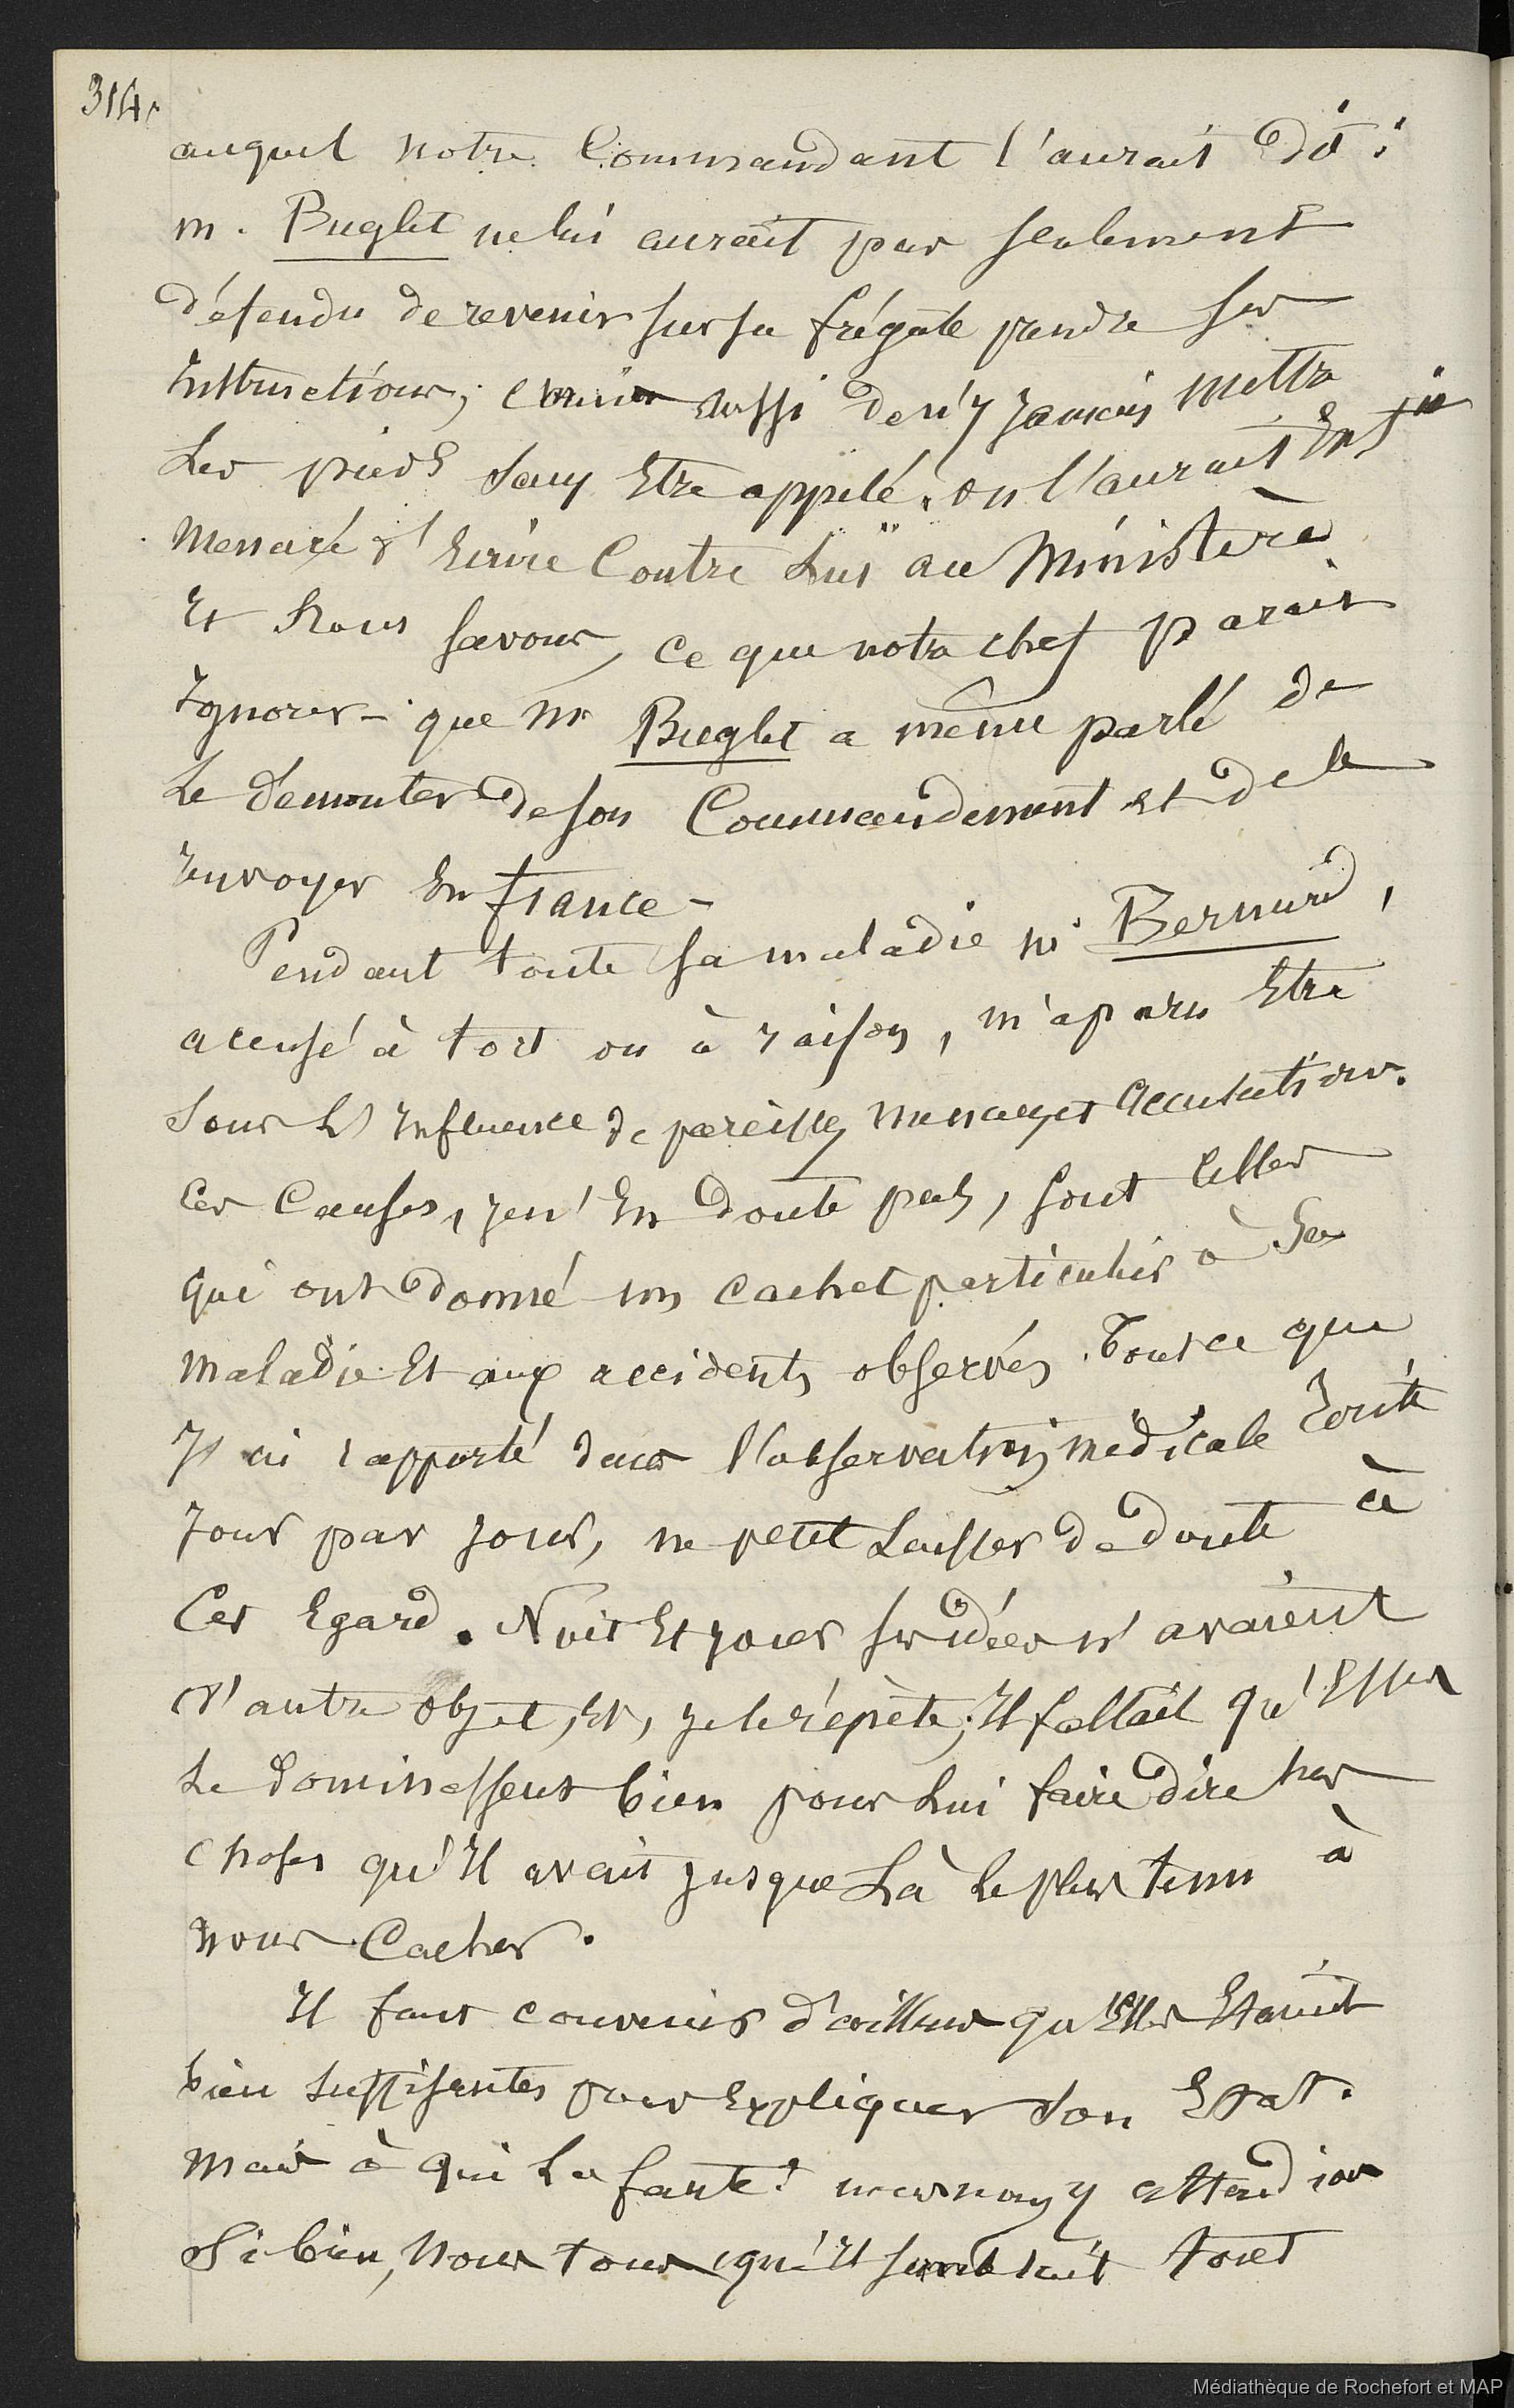 314.
auquel notre Commandant l'aurait dit:
m. Buglet ne lui aurait pas seulement
défendu de revenir sur sa frégate prendre ses
Instructions; mais aussi de n'y Jamais mettre
Les pieds sans Etre appelé. on l'aurait Enfin
menacé d'Ecrire Contre Lui au Ministère
Et Nous savons, ce que notre chef parait
Ignorer – que Mr Buglet a même parlé de
Le demonter de son Commandement et de le
renvoyer En france –
Pendant toute sa maladie Mr Bernard,
accusé à tort ou à raison, m'a paru Etre
sous L'Influence de pareilles menaces et accusations.
Ces Causes, je n'En doute pas, sont celles
qui ont donné un cachet particulier à Sa
maladie Et aux accidents observés. Tout ce que
J'ai rapporté dans l'observation médicale Ecrite
Jour par Jour, ne peut Laisser de doute à
Cet Egard. Nuit Et jour ses idées n'avaient
d'autre objet, Et, je le répète; Il fallait qu'Elles
Le dominassent bien pour Lui faire dire des
choses qu'Il avait jusque Là le plus tenu à
nous Cacher.
Il faut convenir d'ailleurs qu'Elles Etaient
bien suffisantes pour Expliquer son Etat.
mais à qui La faute? nous nous y attendions
Si bien, Nous tous, qu'Il semblait tout
Médiathèque de Rochefort et MAP